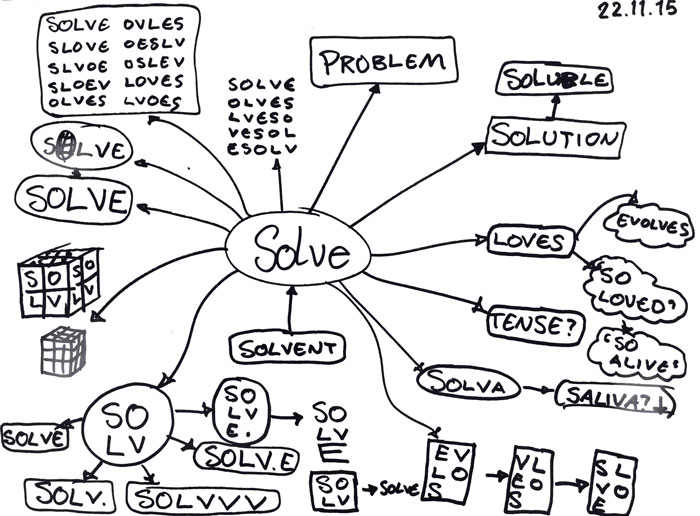 22.11.15
SOLVE OVLES
SLOVE OESLV
SLVOE OSLEV
SLOEV LOVES
OLVES LVOES
SOLVE
OLVES
LVESO
VESOL
ESOLV
PROBLEM
SOLUBLE
SOLUTION
SOLVE
SOLVE
Solve
LOVES
EVOLVES
"SO
LOVED?
"SO
ALIVE"
TENSE?
SOLVENT
SOLVA
SALIVA?
S O S O
L V L V
SO
LV
SOLVE
SOLV.
SOLVVV
SOLV.E
SO
LV
E.
SO
LV
E
SO
LV
SOLVE
EV
LO
S
VL
EO
S
SL
VO
E